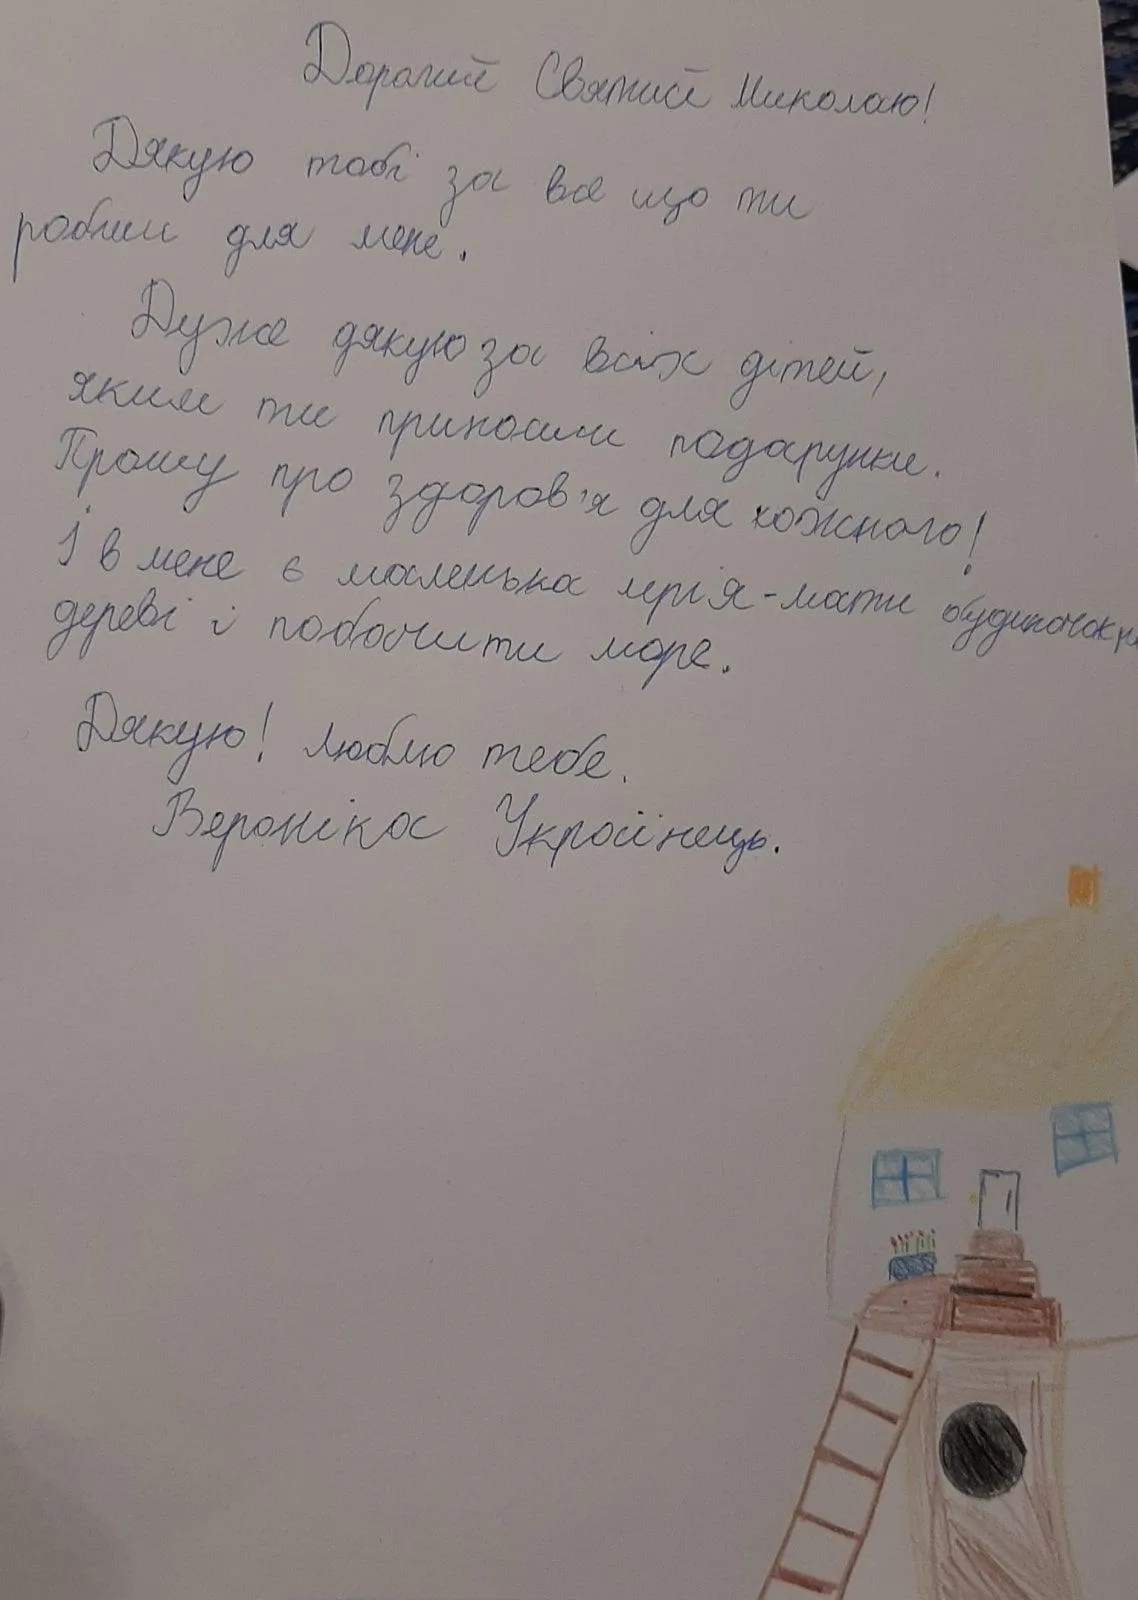 Дорогий Святий Миколаю!
Дякую тобі за все що ти
робиш для мене.
Дуже дякую за всіх дітей,
яким ти приносиш подарунки.
Прошу про здоров'я для кожного!
І в мене є маленька мрія - мати будиночок на
дереві і побачити море.
Дякую! Люблю тебе.
Вероніка Українець.